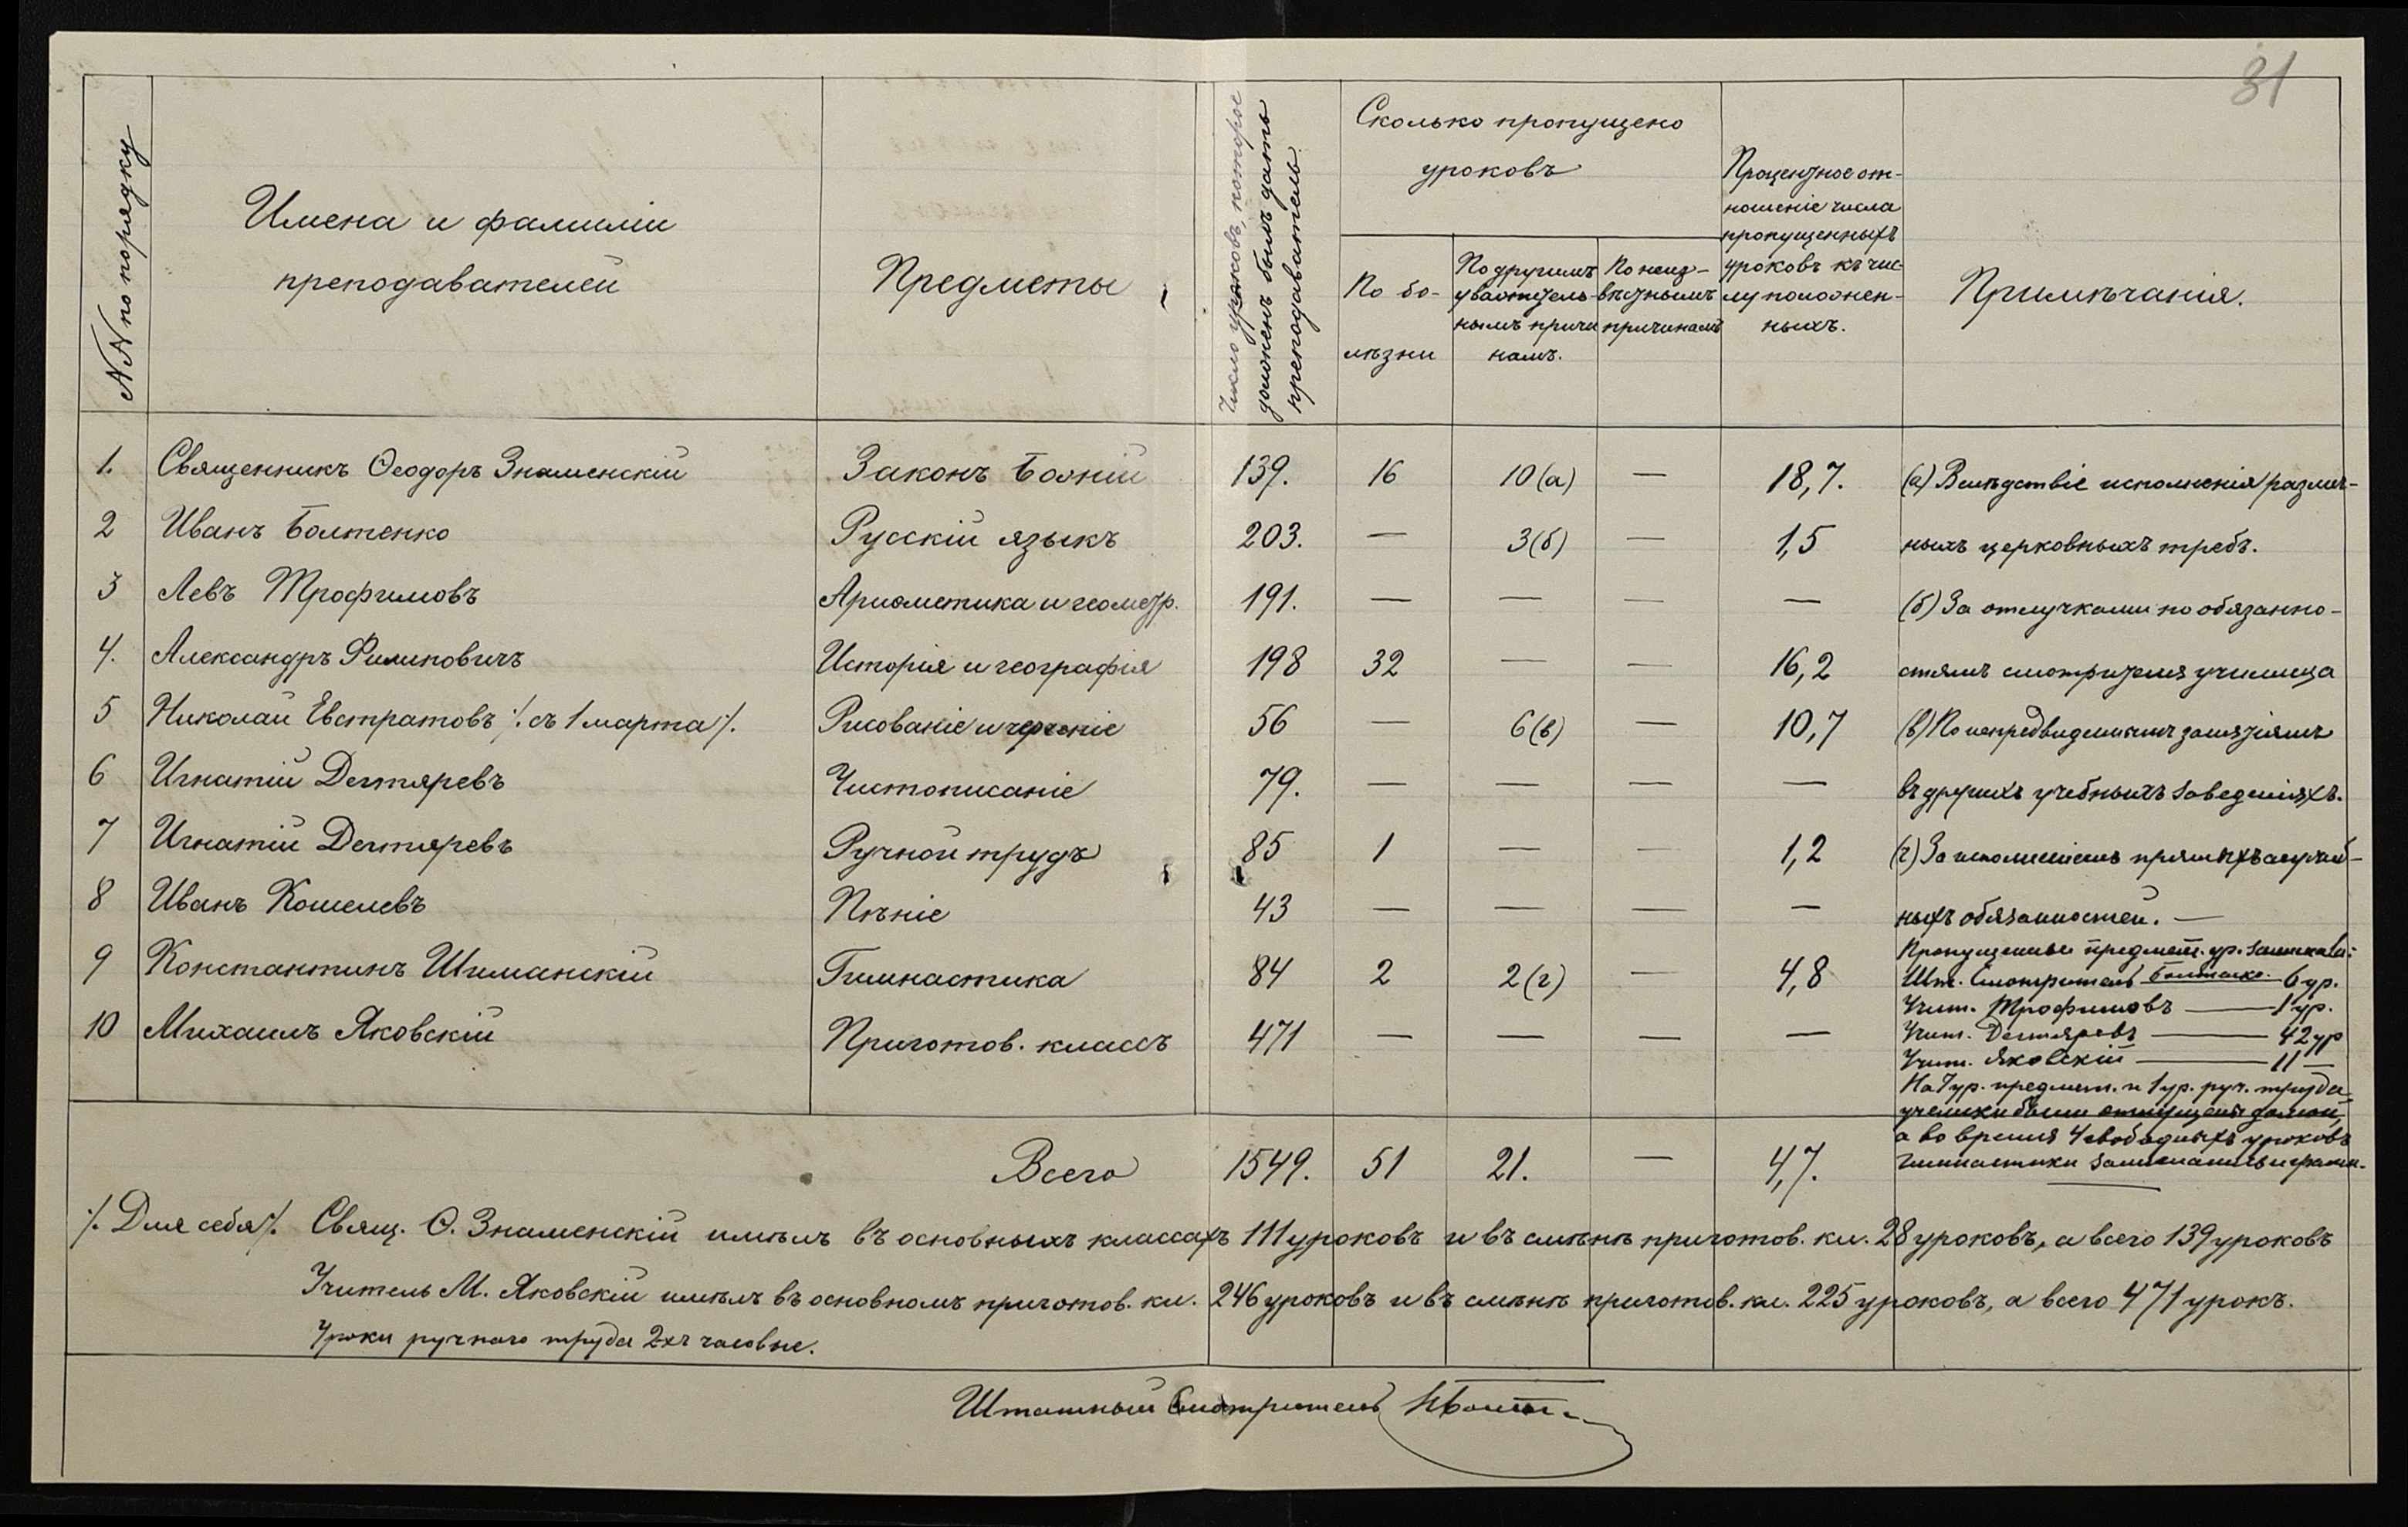 31
№№ по порядку
Имена и фамиліи
преподавателей
Предметы
Число уроковъ, которые
долженъ былъ дать
преподаватель
Сколько пропущено
уроковъ
По бо-
лѣзни
По другимъ
уважитель-
нымъ причи
намъ.
По неиз-
вѣстнымъ
причинамъ
Процентное от-
ношеніе числа
пропущенныхъ
уроковъ къ чис-
лу положен-
ныхъ.
Примѣчанія.
1. Священникъ Ѳеодоръ Знаменскій Законъ Божій 139. 16 10(а) — 18,7. (а) Вслѣдствіе исполненія различ-
2 Иванъ Болтенко Русскій языкъ 203. — 3(б) — 1,5 ныхъ церковныхъ требъ.
3 Левъ Трофимовъ Ариѳметика и геометр. 191. — — — — (б) За отлучками по обязанно-
4. Александръ Филиповичъ Исторія и географія 198 32 — — 16,2 стямъ смотрителя училища
5 Николай Евстратовъ /. съ 1 марта /. Рисованіе и черченіе 56 — 6(в) — 10,7 (в) По непредвидѣннымъ занятіямъ
6 Игнатій Дегтяревъ Чистописаніе 79. — — — — въ другихъ учебныхъ заведеніяхъ.
7 Игнатій Дегтяревъ Ручной трудъ 85 1 — — 1,2 (г) За исполненіемъ прямыхъ служеб-
8 Иванъ Кошелевъ Пѣніе 43 — — — — ныхъ обязанностей. —
9 Константинъ Шиманскій Гимнастика 84 2 2(г) — 4,8
10 Михаилъ Яковскій Приготов. классъ 471 — — — —
Пропущенные предмет. ур. занимали:
Шт. Смотритель Болтенко — 6 ур.
Учит. Трофимовъ — 1 ур.
Учит. Дегтяревъ — 42 ур
Учит. Яковскій — 11 —
На 7 ур. предмет. и 1 ур. руч. труда
ученики были отпущены домой,
а во время 4 свободныхъ уроковъ
гимнастики занимались играми.
Всего 1549. 51 21. — 4,7.
/. Для себя /. Свящ. Ѳ. Знаменскій имѣлъ въ основныхъ классахъ 111 уроковъ и въ смѣнѣ приготов. кл. 28 уроковъ, а всего 139 уроковъ
Учитель М. Яковскій имѣлъ въ основномъ приготов. кл. 246 уроковъ и въ смѣнѣ приготов. кл. 225 уроковъ, а всего 471 урокъ.
Уроки ручнаго труда 2хъ часовые.
Штатный Смотритель